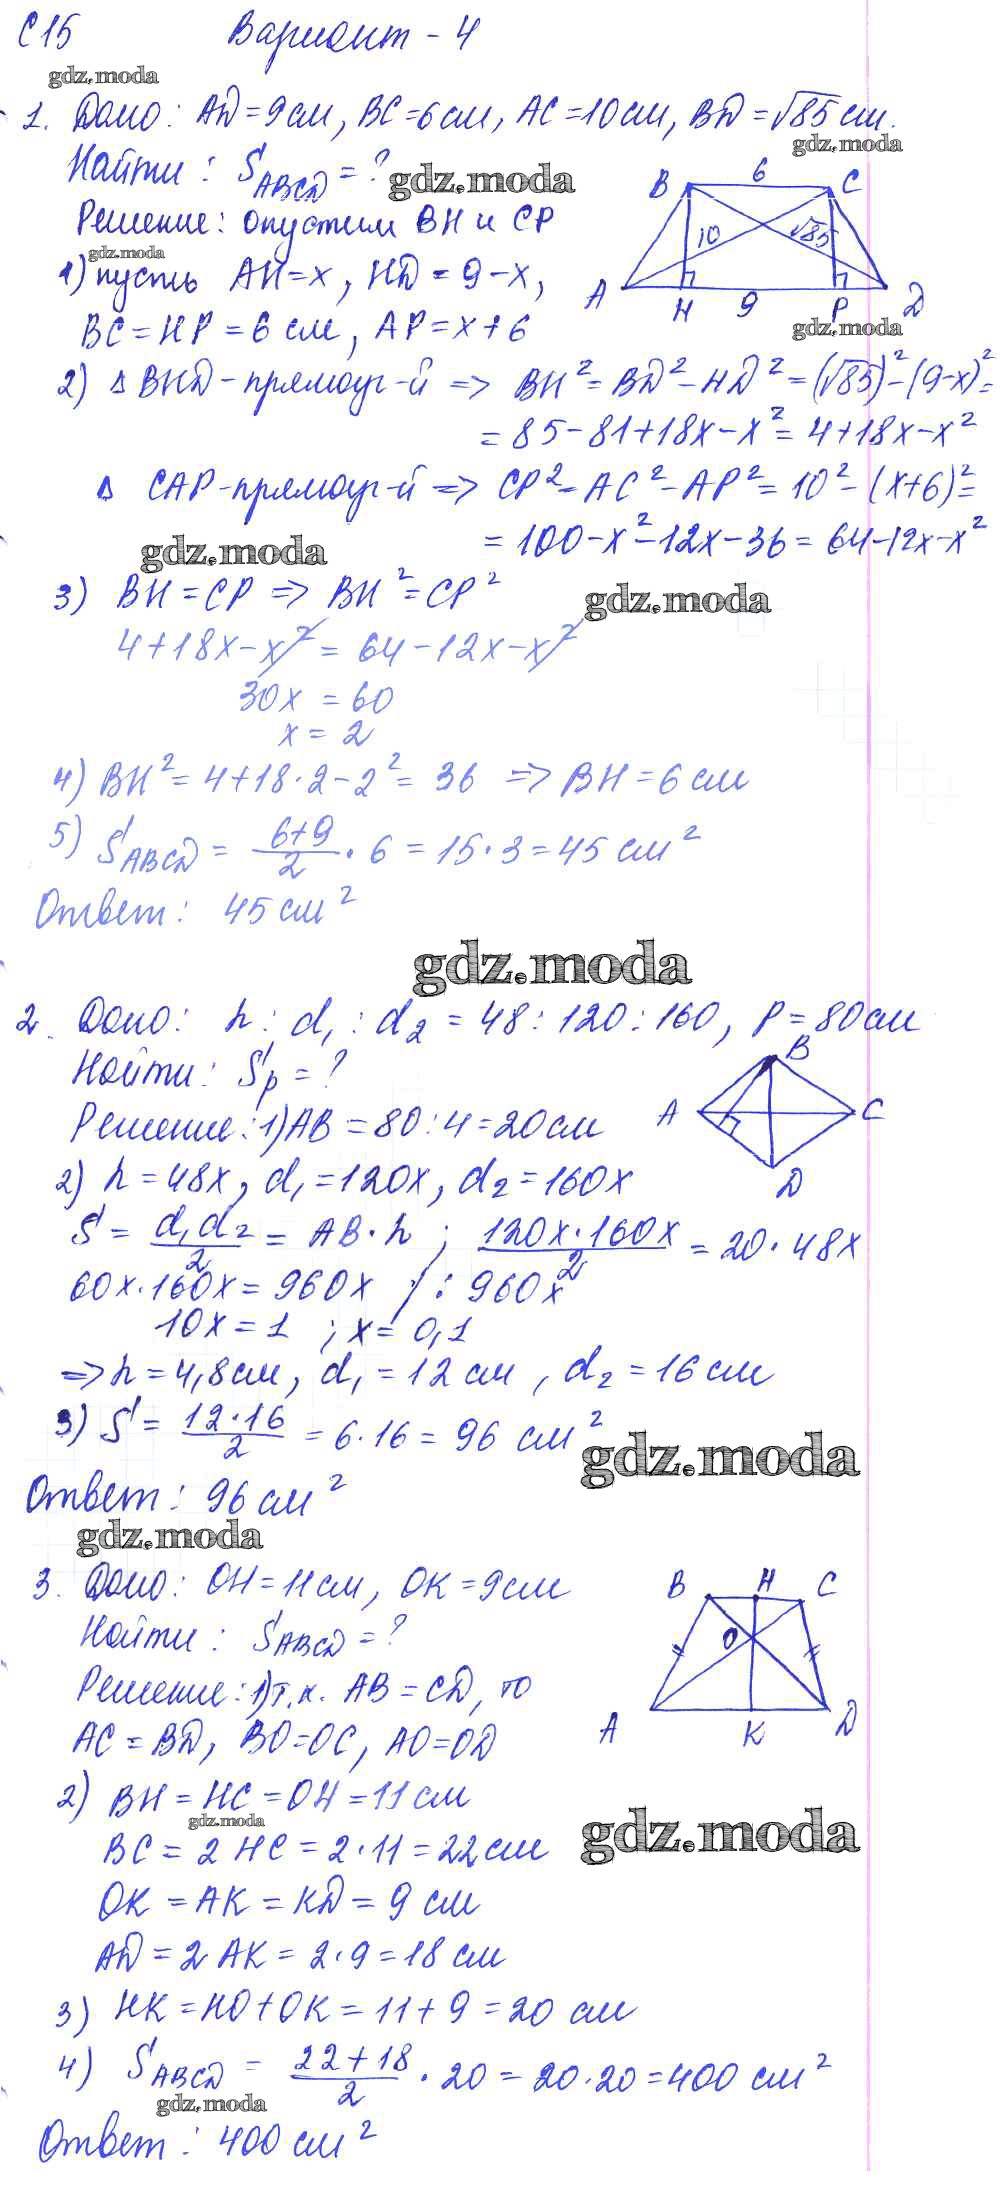 С15 Вариант - 4
gdz.moda
1. Дано: AD = 9 см, BC = 6 см, AC = 10 см, BD = √85 см.
gdz.moda
Найти: S_ABCD = ?
gdz.moda
Решение: опустим BH и CP
gdz.moda
1) пусть AH = x, HD = 9 - x,
BC = HP = 6 см, AP = x + 6
B 6 C
10 √85
A H 9 P D
gdz.moda
2) Δ BHD - прямоуг-й => BH² = BD² - HD² = (√85)² - (9-x)² =
= 85 - 81 + 18x - x² = 4 + 18x - x²
Δ CAP - прямоуг-й => CP² = AC² - AP² = 10² - (x+6)² =
= 100 - x² - 12x - 36 = 64 - 12x - x²
gdz.moda
3) BH = CP => BH² = CP²
gdz.moda
4 + 18x - x² = 64 - 12x - x²
30x = 60
x = 2
4) BH² = 4 + 18·2 - 2² = 36 => BH = 6 см
5) S_ABCD = (6+9)/2 · 6 = 15·3 = 45 см²
Ответ: 45 см²
gdz.moda
2. Дано: h : d₁ : d₂ = 48 : 120 : 160, P = 80 см
Найти: Sр = ?
Решение: 1) AB = 80 : 4 = 20 см
B
A C
D
2) h = 48x, d₁ = 120x, d₂ = 160x
S = d₁d₂/2 = AB · h ; 120x·160x/2 = 20 · 48x
60x·160x = 960x / : 960x
10x = 1 ; x = 0,1
=> h = 4,8 см, d₁ = 12 см, d₂ = 16 см
3) S = 12·16/2 = 6·16 = 96 см²
gdz.moda
Ответ: 96 см²
gdz.moda
3. Дано: OH = 11 см, OK = 9 см
Найти: S_ABCD = ?
Решение: 1) т.к. AB = CD, то
AC = BD, BO = OC, AO = OD
B H C
O
A K D
2) BH = HC = OH = 11 см
gdz.moda
gdz.moda
BC = 2 HC = 2·11 = 22 см
OK = AK = KD = 9 см
AD = 2 AK = 2·9 = 18 см
3) HK = HO + OK = 11 + 9 = 20 см
4) S_ABCD = (22+18)/2 · 20 = 20·20 = 400 см²
gdz.moda
Ответ: 400 см²